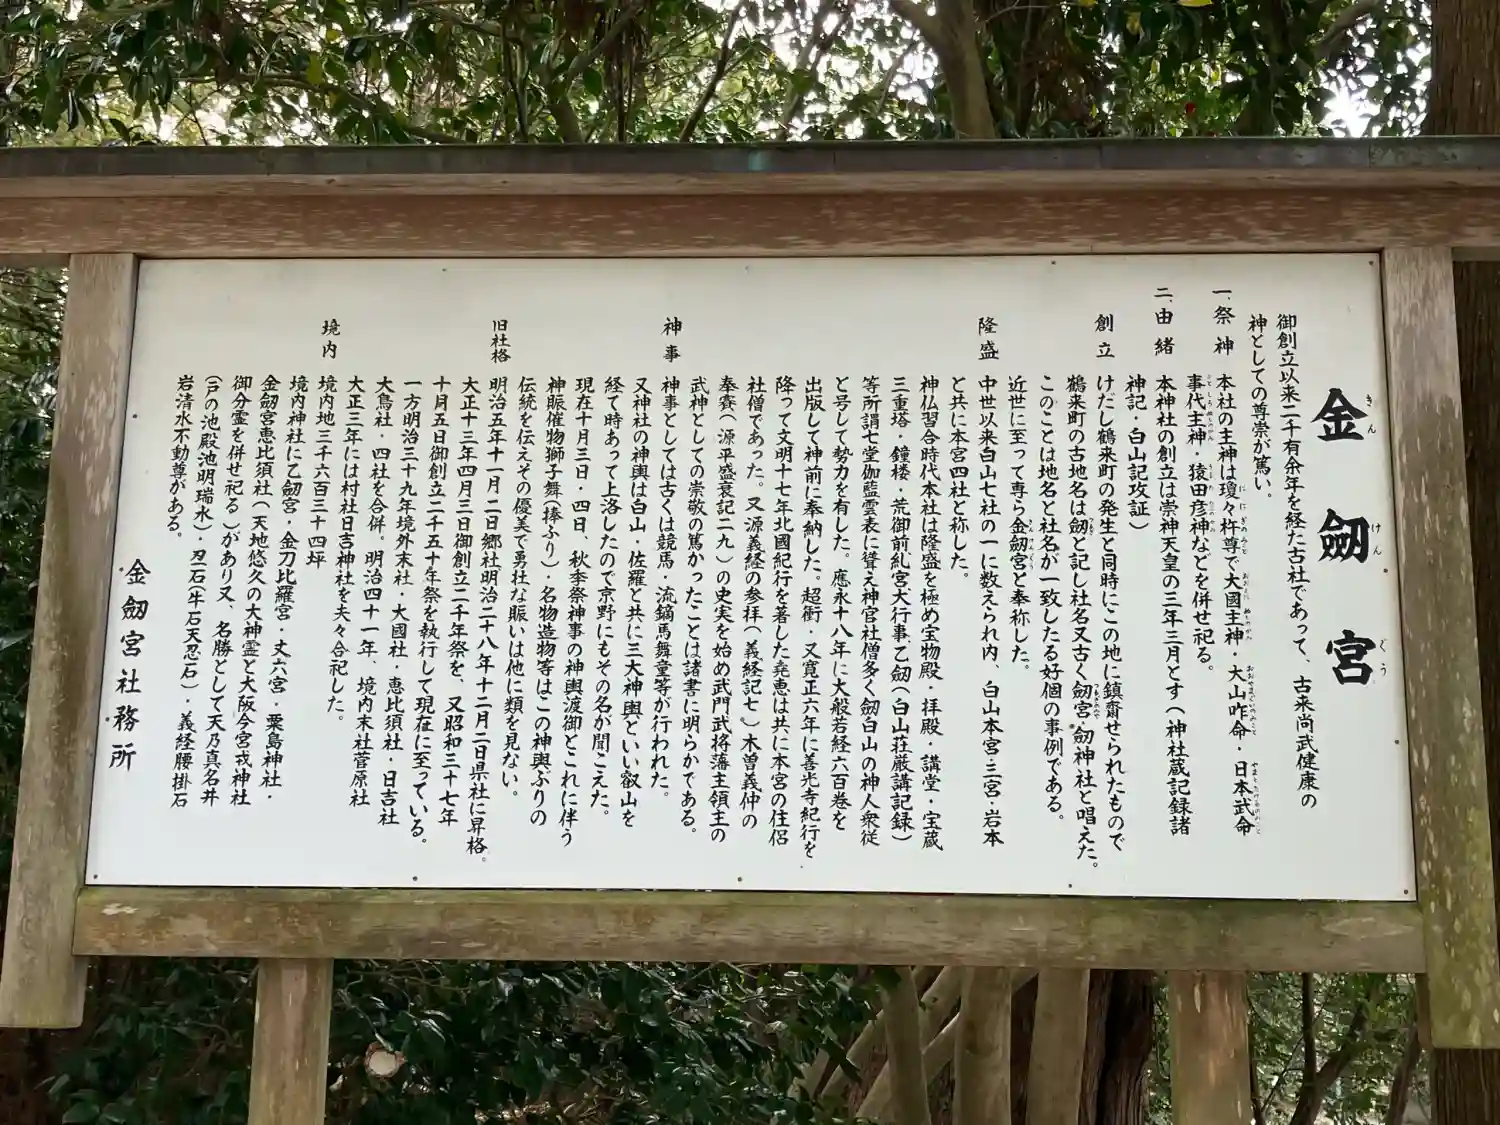 金劔宮
きんけんぐう
御創立以来二千有余年を経た古社であって、古来尚武健康の
神としての尊崇が篤い。
一、祭神 本社の主神は瓊々杵尊で大國主神・大山咋命・日本武命
事代主神・猿田彦神などを併せ祀る。
二、由緒 本神社の創立は崇神天皇の三年三月とす(神社蔵記録諸
神記・白山記攻証)
創立 けだし鶴来町の発生と同時にこの地に鎮齋せられたもので
鶴来町の古地名は劔と記し社名又古く劔宮・劔神社と唱えた。
このことは地名と社名が一致したる好個の事例である。
近世に至って専ら金劔宮と奉称した。
隆盛 中世以来白山七社の一に数えられ内、白山本宮・三宮・岩本
と共に本宮四社と称した。
神仏習合時代本社は隆盛を極め宝物殿・拝殿・講堂・宝蔵
三重塔・鐘楼・荒御前糺宮大行事乙劔(白山荘厳講記録)
等所謂七堂伽藍雲表に聳え神官社僧多く劔白山の神人衆従
と号して勢力を有した。應永十八年に大般若経六百巻を
出版して神前に奉納した。超衝・又寛正六年に善光寺紀行を
降って文明十七年北國紀行を著した堯恵は共に本宮の住侶
社僧であった。又源義経の参拝(義経記七)木曽義仲の
奉賽(源平盛衰記二九)の史実を始め武門武将藩主領主の
武神としての崇敬の篤かったことは諸書に明らかである。
神事 神事としては古くは競馬・流鏑馬舞童等が行われた。
又神社の神輿は白山・佐羅と共に三大神輿といい叡山を
経て時あって上洛したので京野にもその名が聞こえた。
現在十月三日・四日、秋季祭神事の神輿渡御とこれに伴う
神賑催物獅子舞(捧ふり)・名物造物等はこの神輿ぶりの
伝統を伝えその優美で勇壮な賑いは他に類を見ない。
旧社格 明治五年十一月二日郷社明治二十八年十二月二日県社に昇格。
大正十三年四月三日御創立二千年祭を、又昭和三十七年
十月五日御創立二千五十年祭を執行して現在に至っている。
一方明治三十九年境外末社・大國社・恵比須社・日吉社
大鳥社・四社を合併。明治四十一年、境内末社菅原社
大正三年には村社日吉神社を夫々合祀した。
境内 境内地三千六百三十四坪
境内神社に乙劔宮・金刀比羅宮・丈六宮・粟島神社・
金劔宮恵比須社(天地悠久の大神霊と大阪今宮戎神社
御分霊を併せ祀る)があり又、名勝として天乃真名井
(戸の池殿池明瑞水)・忍石(牛石天忍石)・義経腰掛石
岩清水不動尊がある。
金劔宮社務所